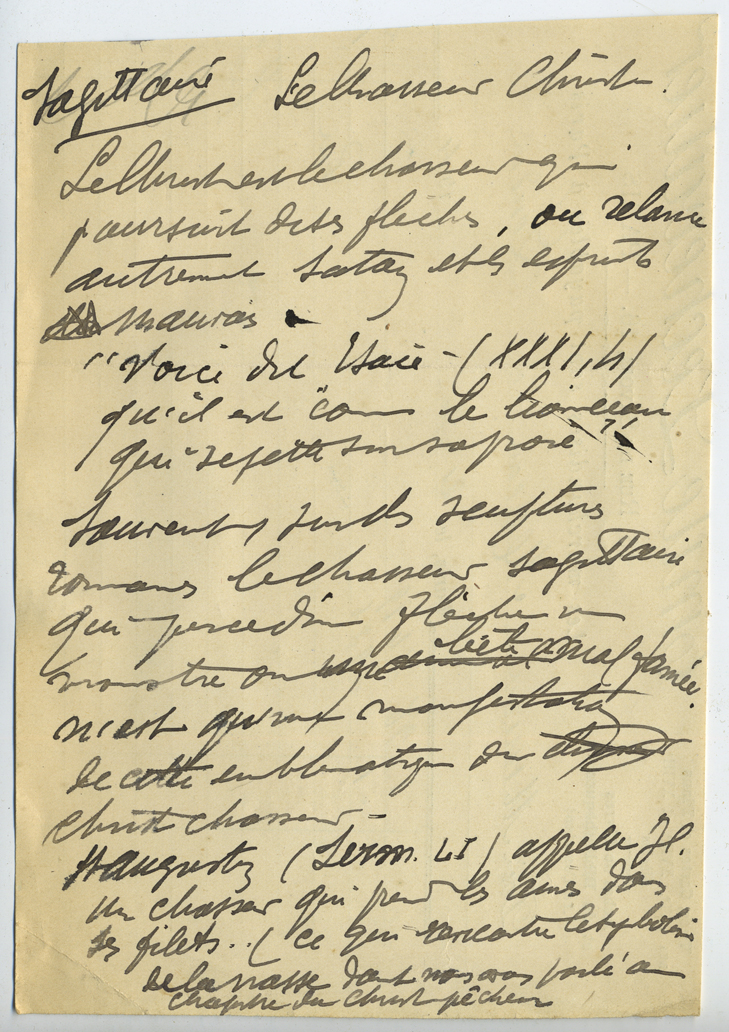 Sagittaire Le Chasseur Christ.
Le Christ est le chasseur qui
poursuit de ses flèches, ou relance
autrement Satan et les esprits
mauvais.
"Voici dit Isaïe - (XXXI, 4)
qu'il est "comme le lionceau
qui se jette sur sa proie"
Souvent, sur les sculptures
romanes le chasseur sagittaire
qui perce d'une flèche un
monstre ou une bête mal famée.
n'est qu'une manifestation
de cette emblématique du
Christ chasseur -
St Augustin (Serm. LI) appelle J.C.
un chasseur qui prend les âmes dans
ses filets.. (ce qui rencontre le symbolisme
de la nasse dont nous avons parlé au
chapitre du Christ pêcheur